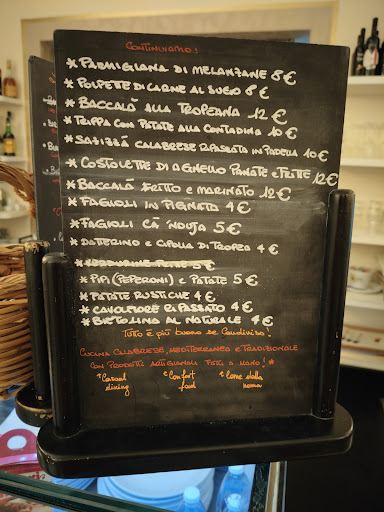 CONTINUIAMO!
* PARMIGIANA DI MELANZANE 8 €
* POLPETTE DI CARNE AL SUGO 8 €
* BACCALÀ ALLA TROPEANA 12 €
* TRIPPA CON PATATE ALLA CONTADINA 10 €
* SAZIZZA CALABRESE RIPASSATA IN PADELLA 10 €
* COSTOLETTE DI AGNELLO PANATE E FRITTE 12 €
* BACCALÀ FRITTO E MARINATO 12 €
* FAGIOLI IN PIGNATA 4 €
* FAGIOLI CA 'NDUJA 5 €
* DATTERINO E CIPOLLA DI TROPEA 4 €
* 5 €
* PIPI (PEPERONI) E PATATE 5 €
* PATATE RUSTICHE 4 €
* CAVOLFIORE RIPASSATO 4 €
* BIETOLINA AL NATURALE 4 €
Tutto è più buono se Condiviso!
CUCINA CALABRESE, MEDITERRANEA E TRADIZIONALE
CON PRODOTTI ARTIGIANALI FATTI A MANO! *
* Casual dining
* Comfort food
* Come dalla nonna